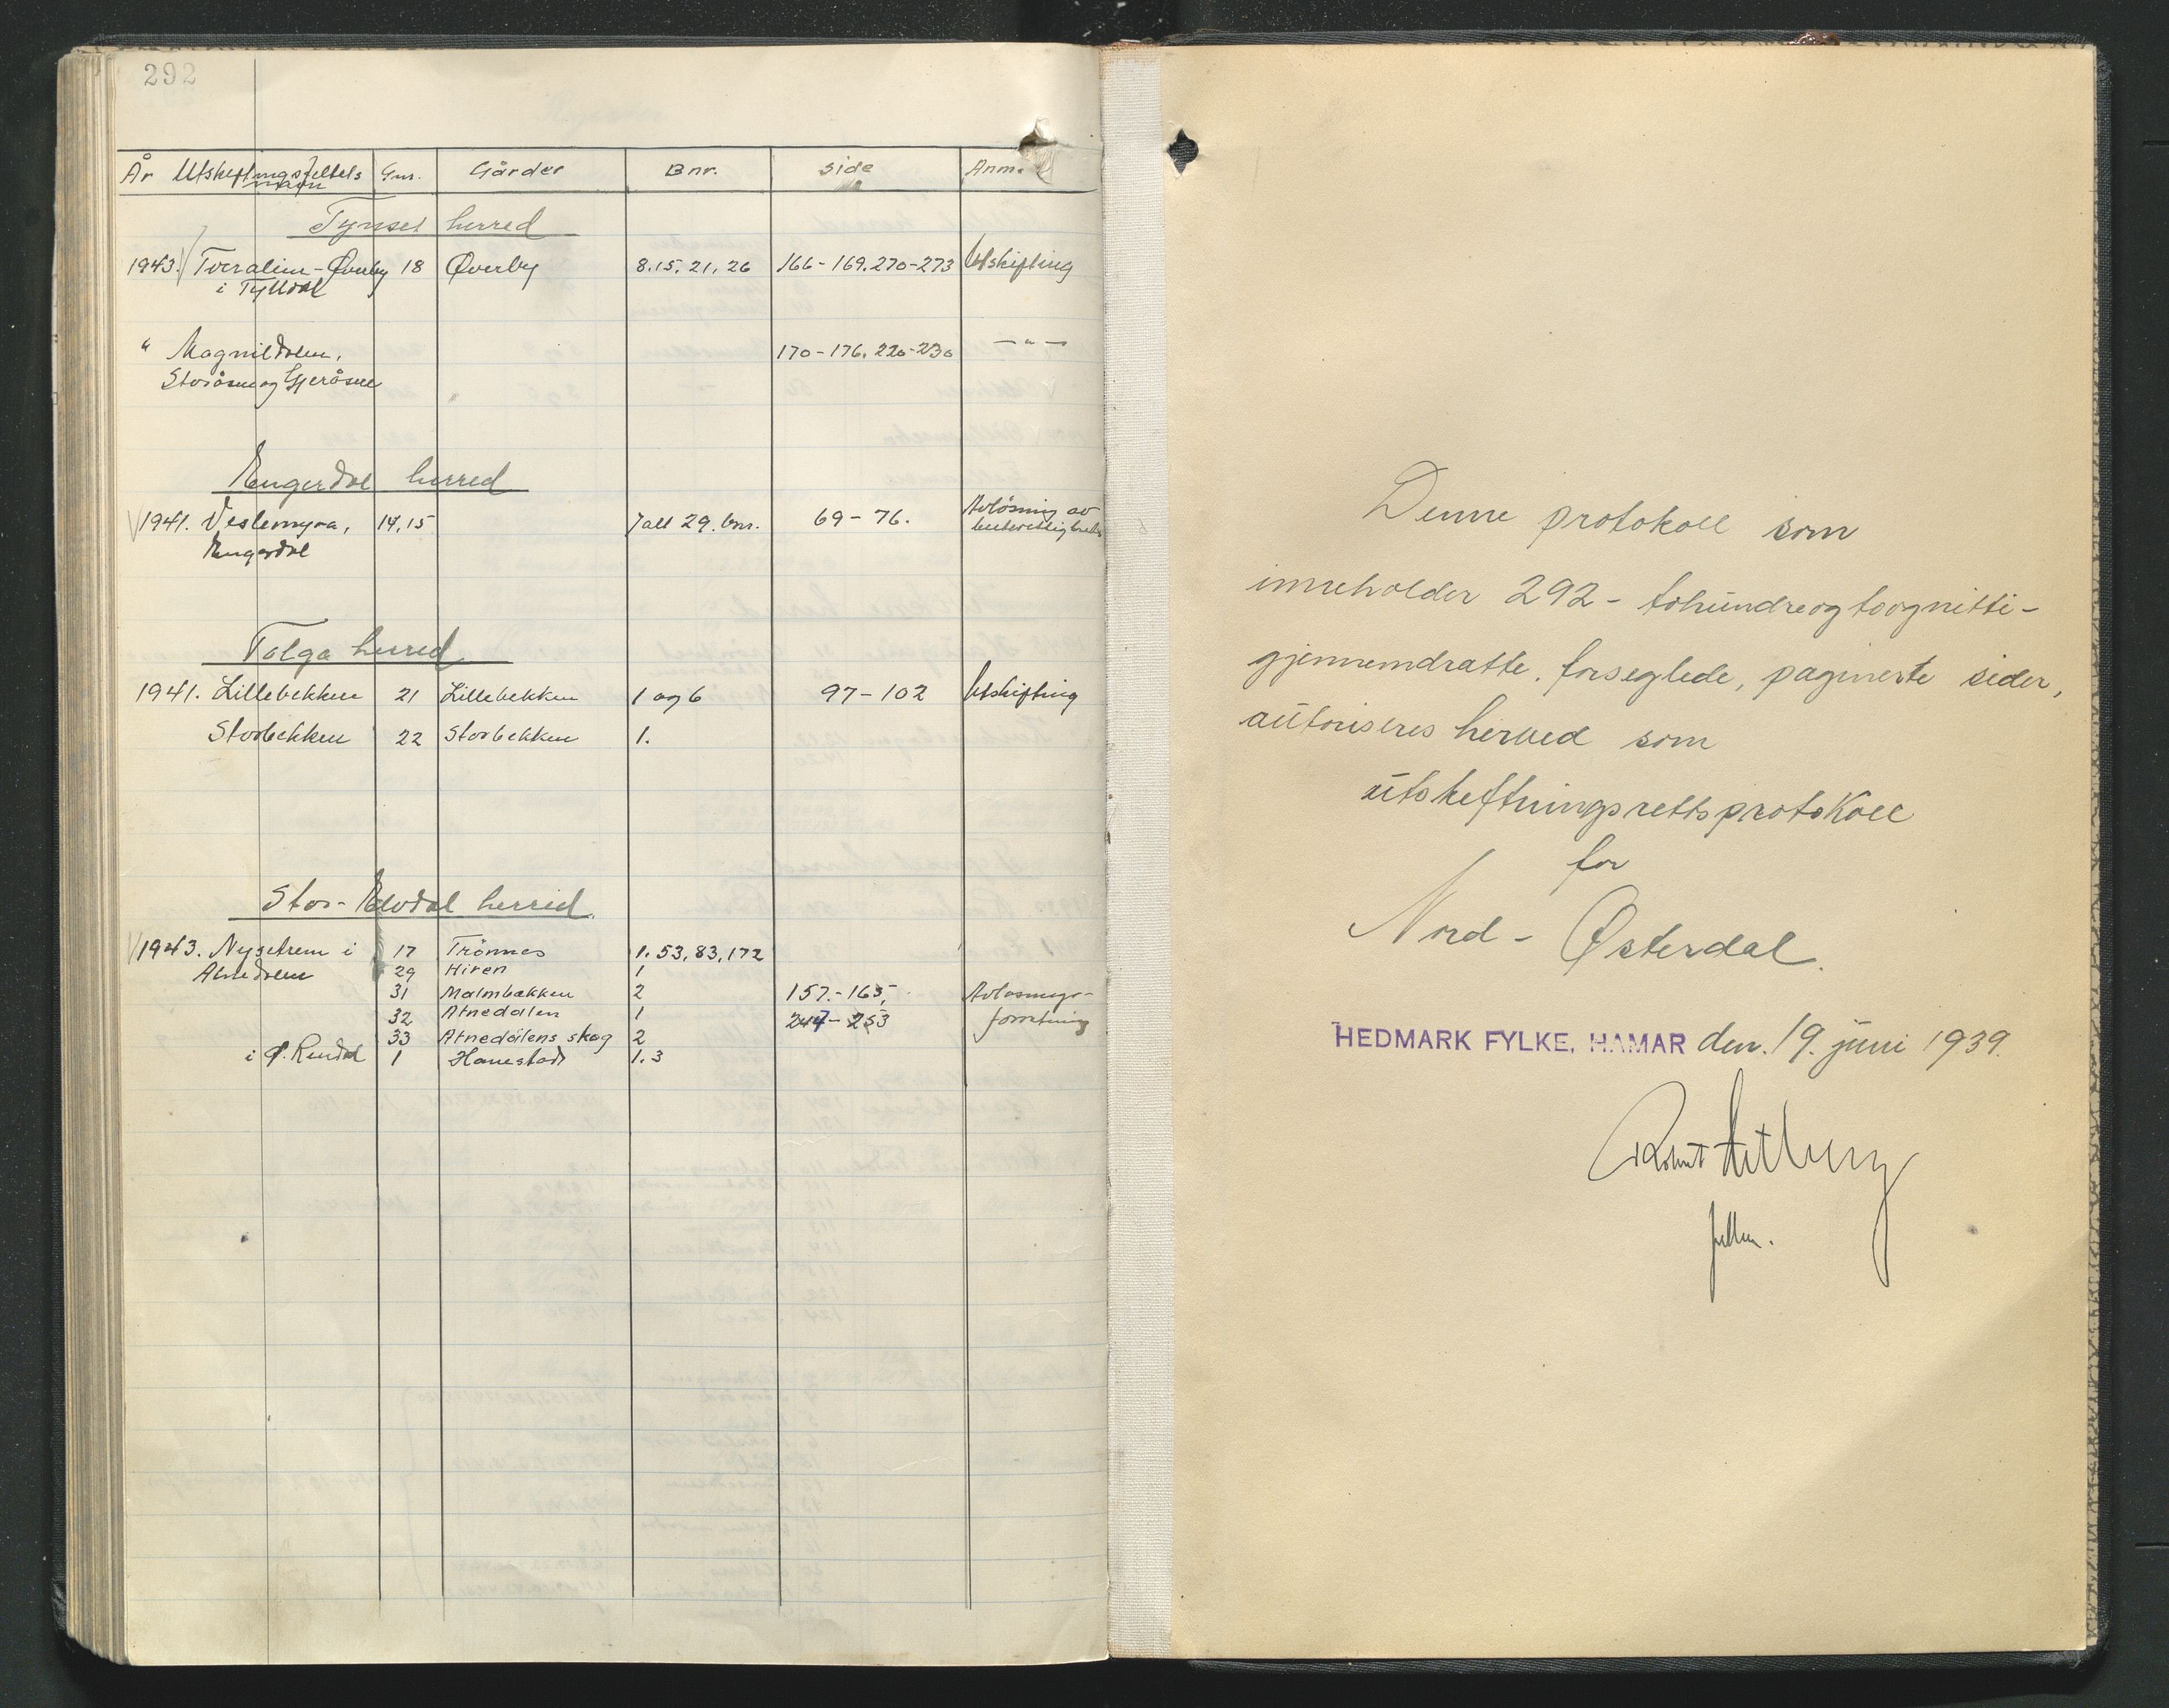 292
År Utskiftingsfeltets navn Gnr. Gårder Bnr. Side Anm.
Tynset herred
1943. Tveralien-Øverby 18 Øverby 8.15.21.26 166-169.270-273 Utskifting
i Tylldal
" Magnildalen, 170-176.220-230 -"-
Storåsen og Gjeråsen
Engerdal herred
1941. Vestemyra, 14,15 I alt 29. bnr. 69-76. Avlösning av
Engerdal
Tolga herred
1941. Lillebekken 21 Lillebekken 1 og 6 97-102 Utskifting
Storbekken 22 Storbekken 1.
Stor-Elvdal herred.
1943. Nysetrem i 17 Trönnes 1.53,83,172
Atnedalen 29 Hiren 1
31 Malmbakken 2 157.-165, Avløsnings-
32 Atnedalen 1 247-253 forretning
33 Atnedalens skog 2
i Ø. Rendal 1 Hanestad 1.3
Denne protokoll som
inneholder 292- tohundreogtoognitti-
gjennemdratte, forseglede, paginerte sider,
autoriseres herved som
utskiftningsrettsprotokoll
for
Nord-Østerdal.
HEDMARK FYLKE, HAMAR den 19. juni 1939.